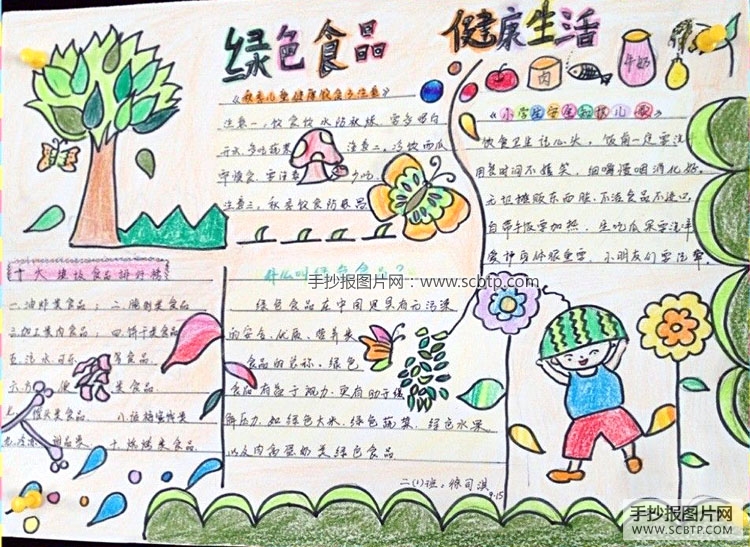 绿色食品 健康生活
《秋季儿童健康饮食多注意》
注意一，饮食饮水防秋燥，需多喝白
开水，多吃蔬菜 注意二，冷饮西瓜
少吃，
注意三，秋季饮食防暴品
肉
牛奶
饮食卫生记心头，饭前一定要洗
用餐时间不嬉笑，细嚼慢咽消化好。
无证摊贩东西脏，不洁食品不进口，
自带午饭要加热，生吃瓜果要洗净
爱护身体很重要，小朋友们要注意。
十大垃圾食品排行榜
一.油炸类食品； 二.腌制类食品
三.加工类肉食品； 四.饼干类食品
五.汽水.可乐 食品
六.方便 类食品
罐头类食品
十.烧烤类食品
什么叫绿色食品？
绿色食品在中国是具有无污染
的安全，优质，营养类
食品的总称，绿色
食品有益于视力，更有助于缓
解压力，如绿色大米，绿色蔬菜，绿色水果
以及肉禽蛋奶类绿色食品
二(1)班，徐司淇
9.15
手抄报图片网：www.scbtp.com
手抄报图片网
WWW.SCBTP.COM